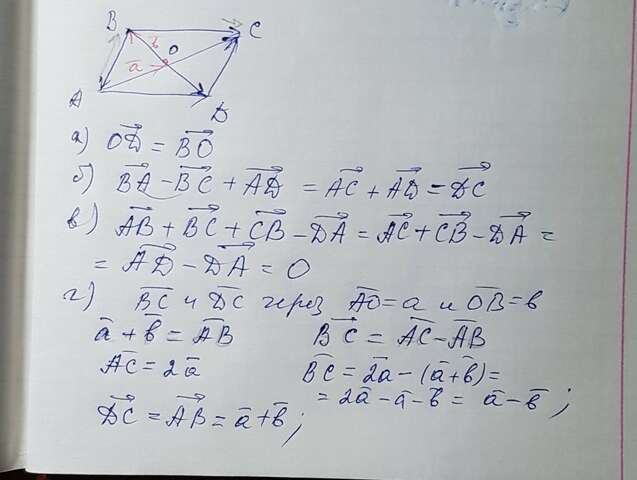 B
C
O
b
a
A
D
а) OD = BO
б) BA - BC + AD = AC + AD = DC
в) AB + BC + CB - DA = AC + CB - DA =
= AD - DA = 0
г) BC и DC через AO = a и OB = b
a + b = AB    BC = AC - AB
AC = 2a    BC = 2a - (a + b) =
= 2a - a - b = a - b;
DC = AB = a + b;